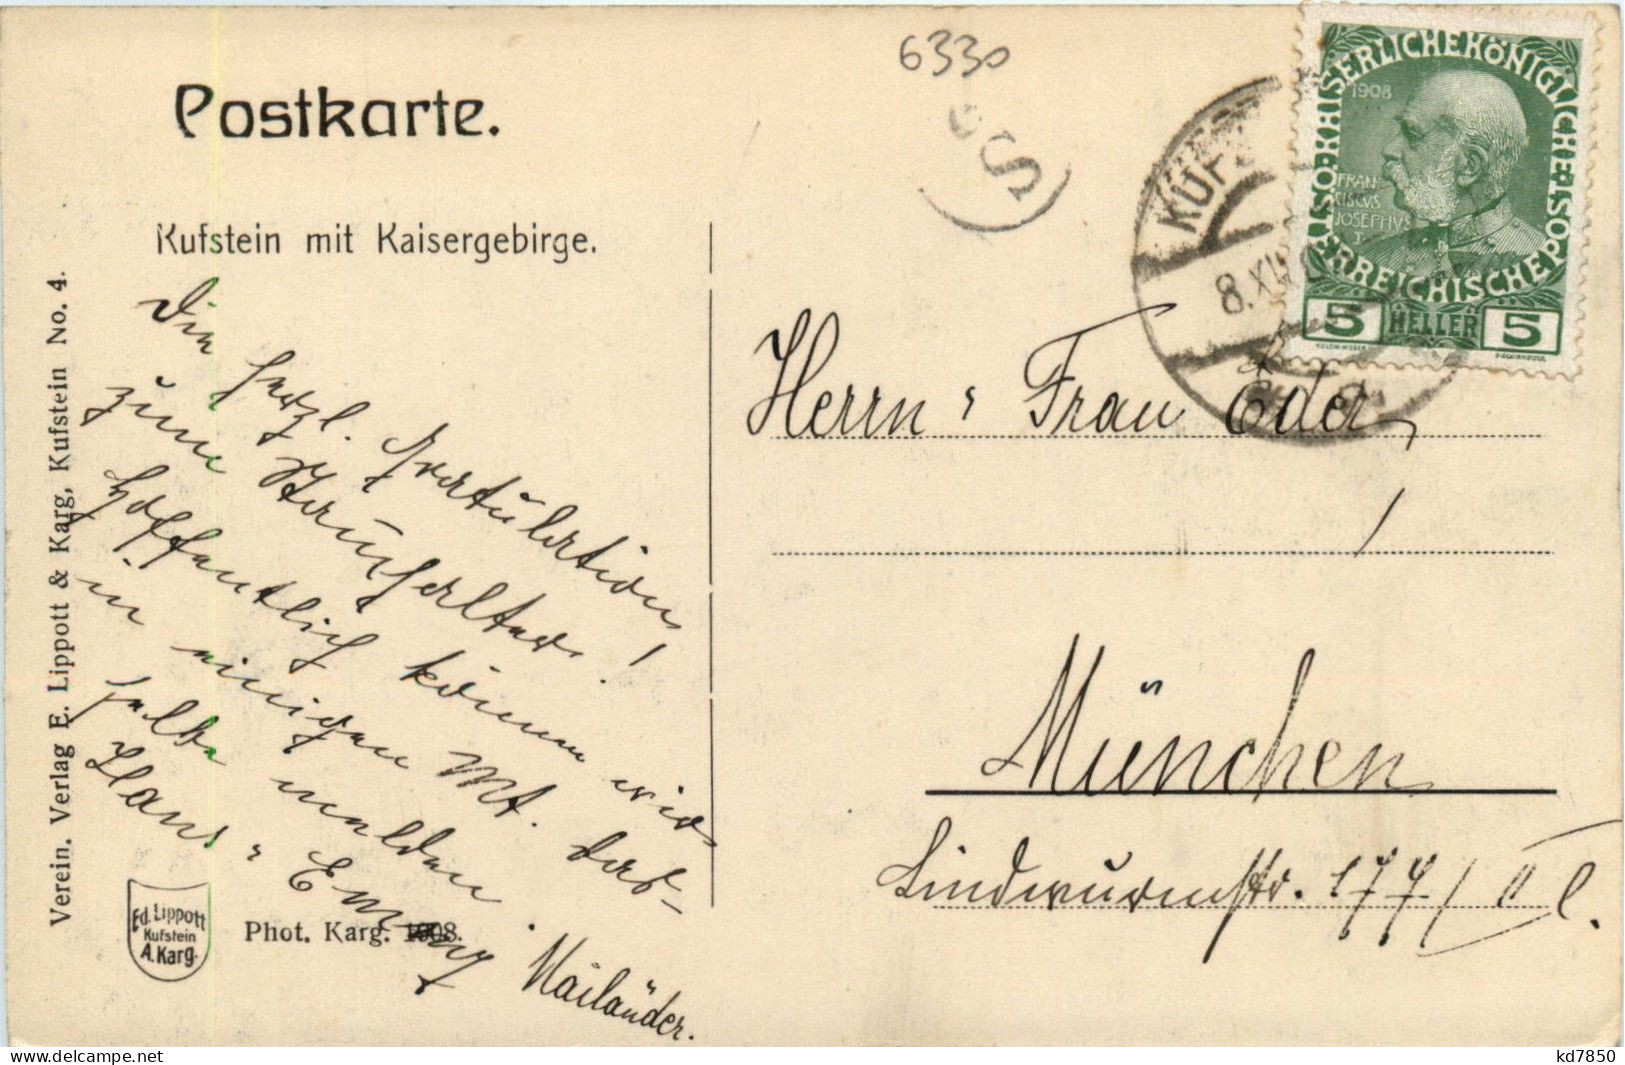 6330
Postkarte.
Kufstein mit Kaisergebirge.
KUF
8.XII
KAISERLICHE KÖNIGLICHE ÖSTERREICHISCHE POST
1908
FRAN-
CISCVS
JOSEPHVS
5 HELLER 5
Herrn u Frau Eder
München
Lindwurmstr. 177/II l.
Die herzl. Gratulation
zum Stammhalter!
Hoffentlich können wir
in einigen Mt. das-
selbe melden.
Hans u Emmy Mailänder.
Verein. Verlag E. Lippott & Karg, Kufstein No. 4.
Ed. Lippott
Kufstein
A. Karg.
Phot. Karg. 1908.
kd7850